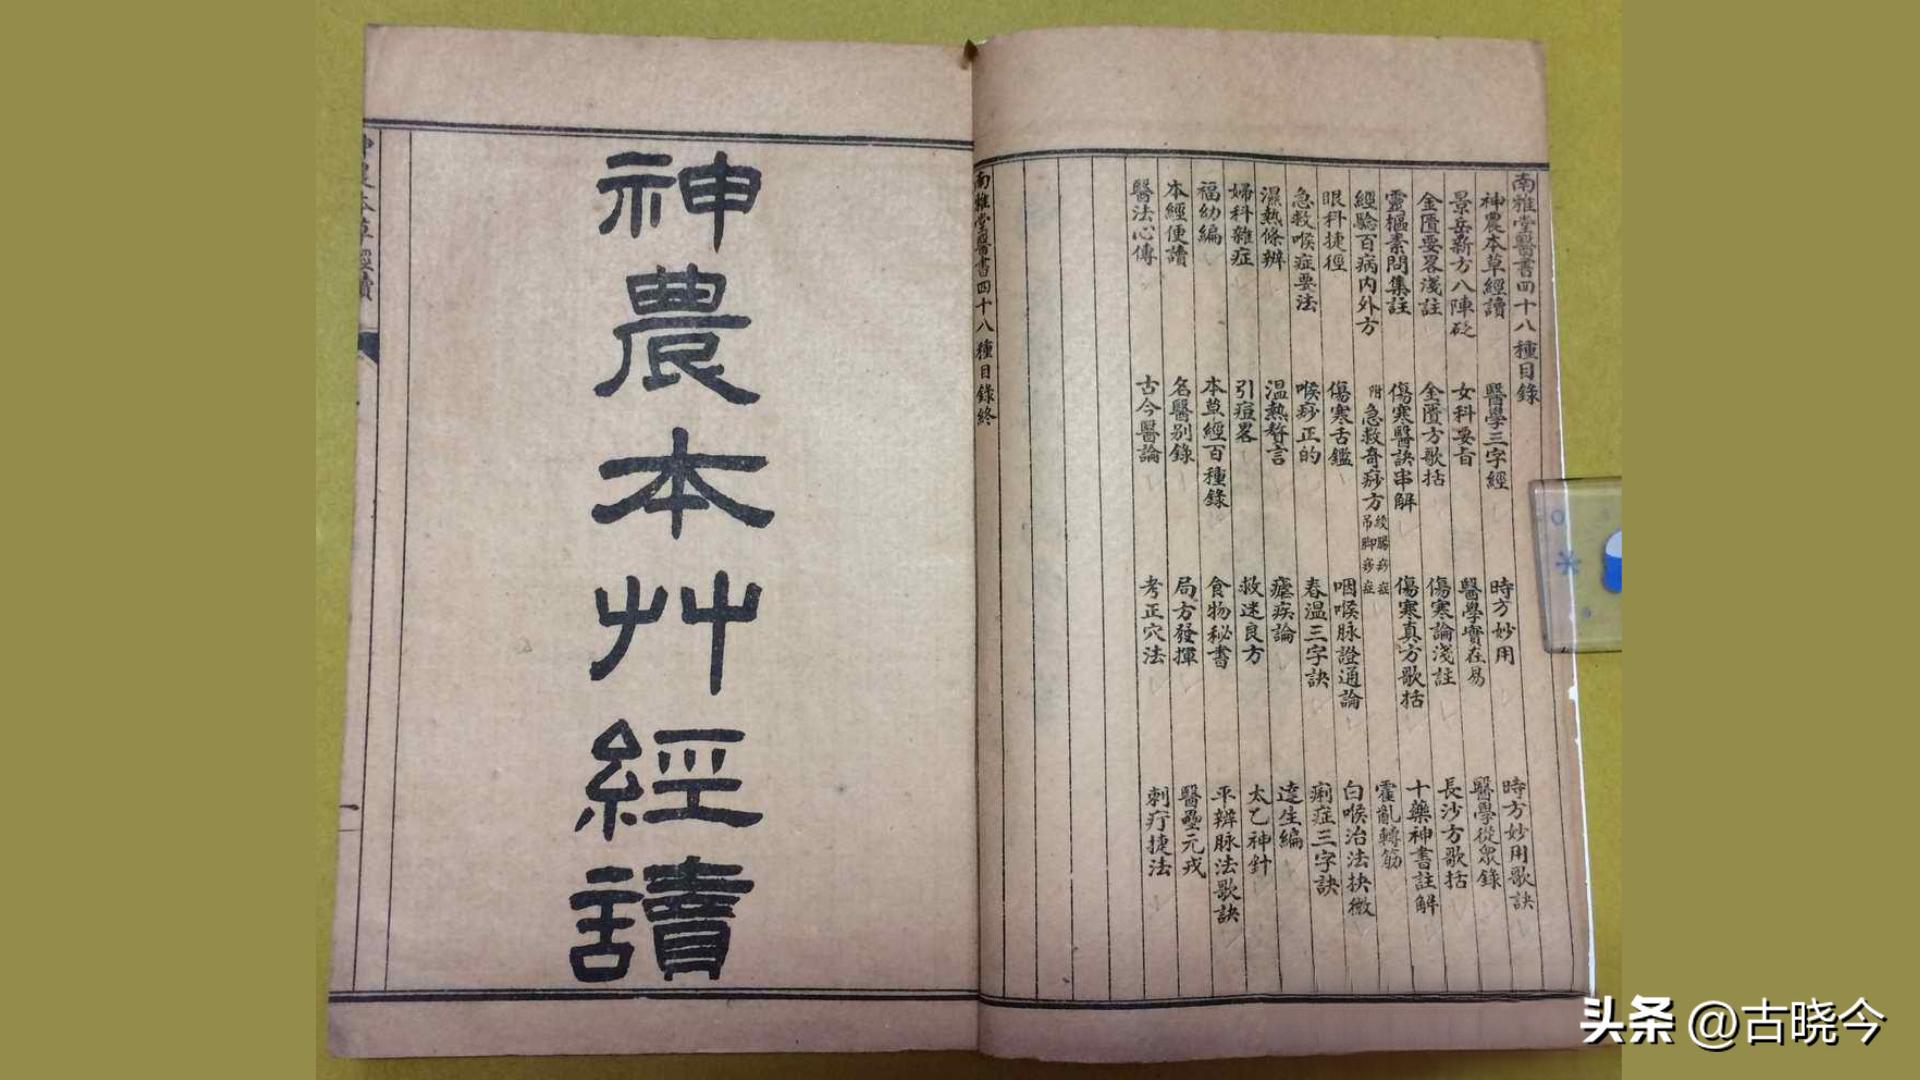 南雅堂醫書四十八種目錄
神農本草經讀 醫學三字經 時方妙用 時方妙用歌訣
景岳新方八陣砭 女科要旨 醫學實在易 醫學從眾錄
金匱要畧淺註 金匱方歌括 傷寒論淺註 長沙方歌括
靈樞素問集註 傷寒醫訣串解 傷寒真方歌括 十藥神書註解
經驗百病內外方 附急救奇痧方 絞腸痧症 吊脚痧症 霍亂轉筋
眼科捷徑 傷寒舌鑑 咽喉脉證通論 白喉治法抉微
急救喉症要法 喉痧正的 春温三字訣 痢症三字訣
濕熱條辨 温熱贅言 瘧疾論 達生編
婦科雜症 引痘畧 救迷良方 太乙神針
福幼編 本草經百種錄 食物秘書 平辨脉法歌訣
本經便讀 名醫别錄 局方發揮 醫壘元戎
醫法心傳 古今醫論 考正穴法 刺疔捷法
南雅堂醫書四十八種目錄終
神農本艸經讀
神農本草經讀
一
头条 @古晓今